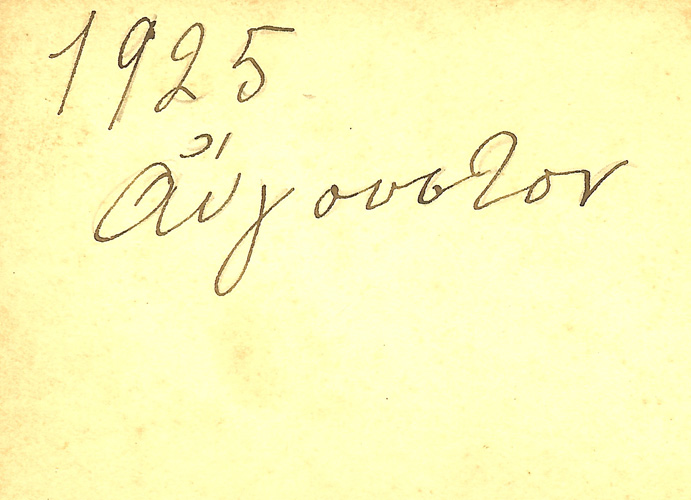 1925
Αὔγουστον